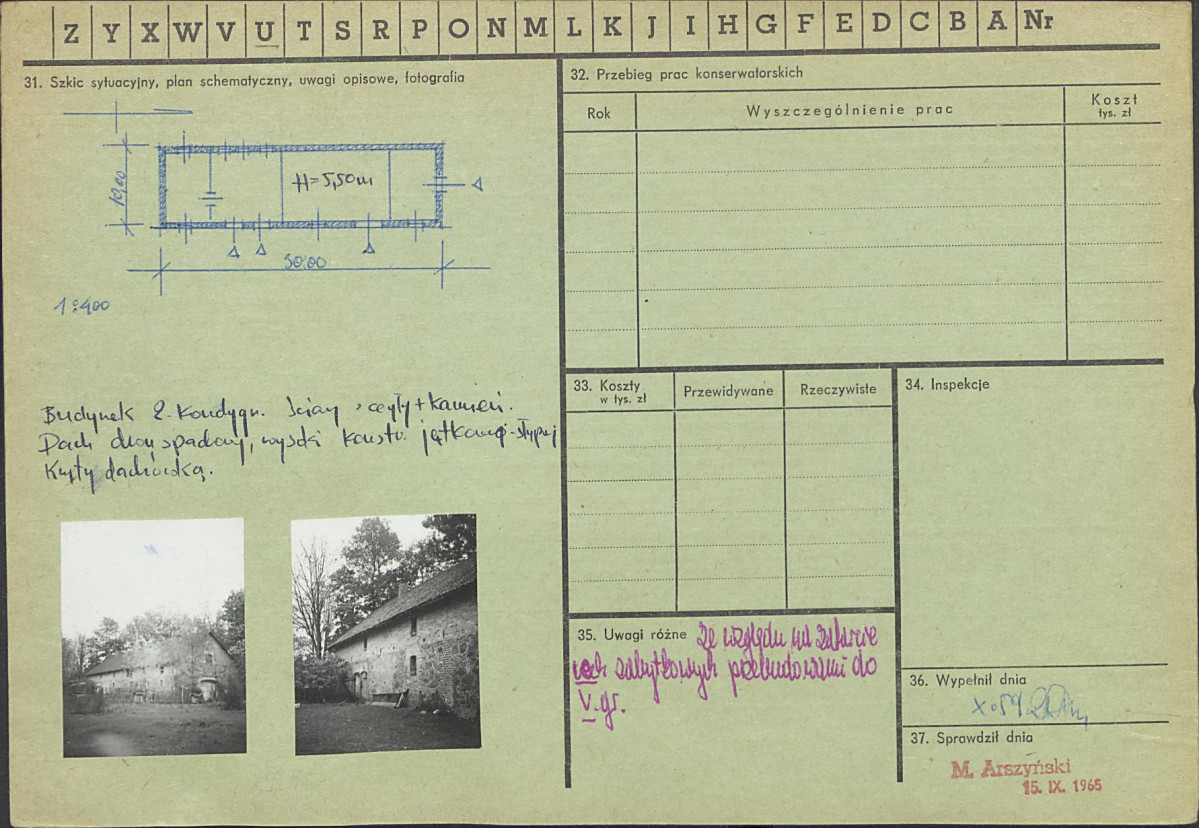 Z Y X W V U T S R P O N M L K J I H G F E D C B A Nr
31. Szkic sytuacyjny, plan schematyczny, uwagi opisowe, fotografia
10,00
H=5,50m
50.00
1:400
Budynek 2. Kondygn. Ściany z cegły+kamień.
Dach dwuspadowy, wysoki konstr. jętkowej-stypuj
Kryty dachówką.
32. Przebieg prac konserwatorskich
Rok
Wyszczególnienie prac
Koszt
tys. zł
33. Koszty
w tys. zł
Przewidywane
Rzeczywiste
34. Inspekcje
35. Uwagi różne Ze względu na zatarcie
cech zabytkowych przebudowami do
V. gr.
36. Wypełnił dnia
X.59
37. Sprawdził dnia
M. Arszyński
15. IX. 1965